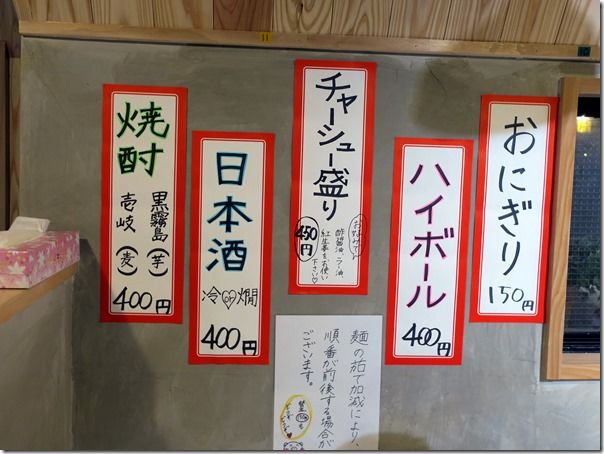 焼酎
黒霧島(芋)
壱岐(麦)
400円
日本酒
冷 or 燗
400円
チャーシュー盛り
お好みで
酢醤油、ラー油、
紅生姜をお使い
下さい♡
450円
ハイボール
400円
おにぎり
150円
麺の茹で加減により、
順番が前後する場合が
ございます。
11